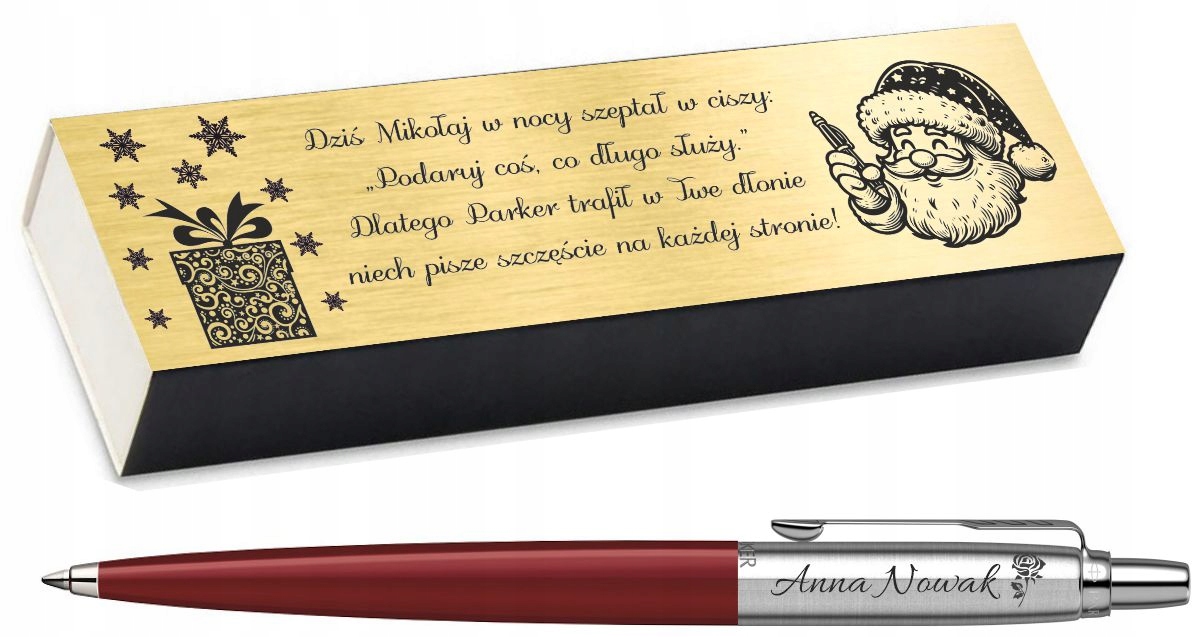 Dziś Mikołaj w nocy szeptał w ciszy:
„Podaruj coś, co długo służy.”
Dlatego Parker trafił w Twe dłonie
niech pisze szczęście na każdej stronie!
KER
Anna Nowak